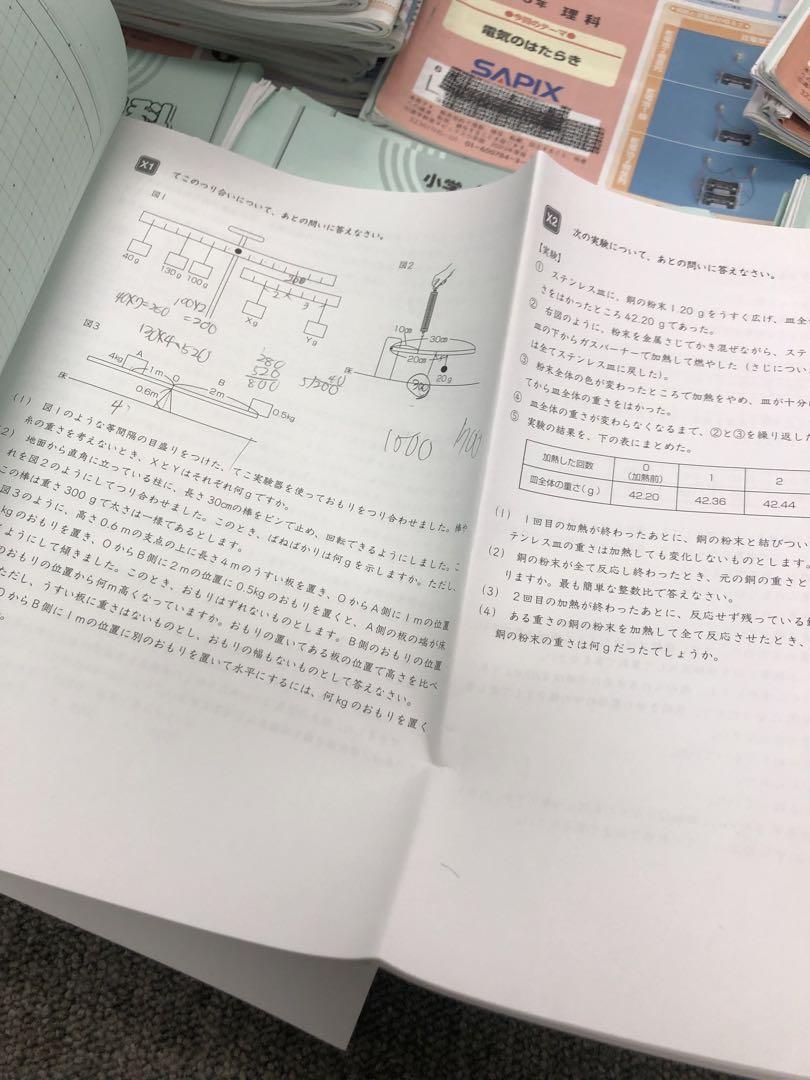 年 理科
●今回のテーマ●
電気のはたらき
SAPIX
小学
X1
てこのつり合いについて、あとの問いに答えなさい。
図1
40g
130g
100g
Xg
Yg
40×7=280
100×2
=200
130×4=520
280
520
800
図2
10cm
30cm
20cm
20g
床
1000
図3
4kg
A
1m
O
B
2m
0.6m
0.5kg
床
(1) 図1のような等間隔の目盛りをつけた、てこ実験器を使っておもりをつり合わせました。棒や
糸の重さを考えないとき、XとYはそれぞれ何gですか。
(2) 地面から直角に立っている柱に、長さ30cmの棒をピンで止め、回転できるようにしました。こ
れを図2のようにしてつり合わせました。このとき、ばねばかりは何gを示しますか。ただし、
この棒は重さ300gで太さは一様であるとします。
図3のように、高さ0.6mの支点の上に長さ4mのうすい板を置き、OからA側に1mの位置
kgのおもりを置き、OからB側に2mの位置に0.5kgのおもりを置くと、A側の板の端が床
ようにして傾きました。このとき、おもりはずれないものとします。B側のおもりの位置
のおもりの位置から何m高くなっていますか。おもりの置いてある板の位置で高さを比べ
ただし、うすい板に重さはないものとし、おもりの幅もないものとして答えなさい。
OからB側に1mの位置に別のおもりを置いて水平にするには、何kgのおもりを置く
X2
次の実験について、あとの問いに答えなさい。
【実験】
① ステンレス皿に、銅の粉末1.20gをうすく広げ、皿全
さをはかったところ42.20gであった。
② 右図のように、粉末を金属さじでかき混ぜながら、ステ
皿の下からガスバーナーで加熱して燃やした(さじについ
は全てステンレス皿に戻した)。
③ 粉末全体の色が変わったところで加熱をやめ、皿が十分に
てから皿全体の重さをはかった。
④ 皿全体の重さが変わらなくなるまで、②と③を繰り返した
⑤ 実験の結果を、下の表にまとめた。
加熱した回数 0(加熱前) 1 2
皿全体の重さ(g) 42.20 42.36 42.44
(1) 1回目の加熱が終わったあとに、銅の粉末と結びつい
テンレス皿の重さは加熱しても変化しないものとします。
(2) 銅の粉末が全て反応し終わったとき、元の銅の重さと
りますか。最も簡単な整数比で答えなさい。
(3) 2回目の加熱が終わったあとに、反応せず残っている銅
(4) ある重さの銅の粉末を加熱して全て反応させたとき、
銅の粉末の重さは何gだったでしょうか。